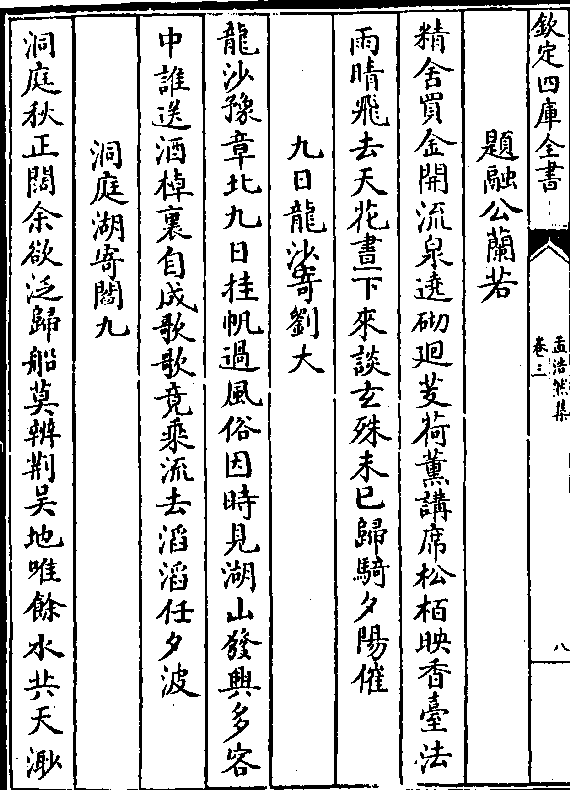 欽定四庫全書
孟浩然集
卷三
八
題融公蘭若
精舍買金開流泉遶砌廻芰荷薰講席松栢映香臺法
雨晴飛去天花晝下來談玄殊未已歸騎夕陽催
九日龍沙寄劉大
龍沙豫章北九日挂帆過風俗因時見湖山發興多客
中誰送酒棹裏自成歌歌竟乘流去滔滔任夕波
洞庭湖寄閻九
洞庭秋正闊余欲泛歸船莫辨荆吴地唯餘水共天渺